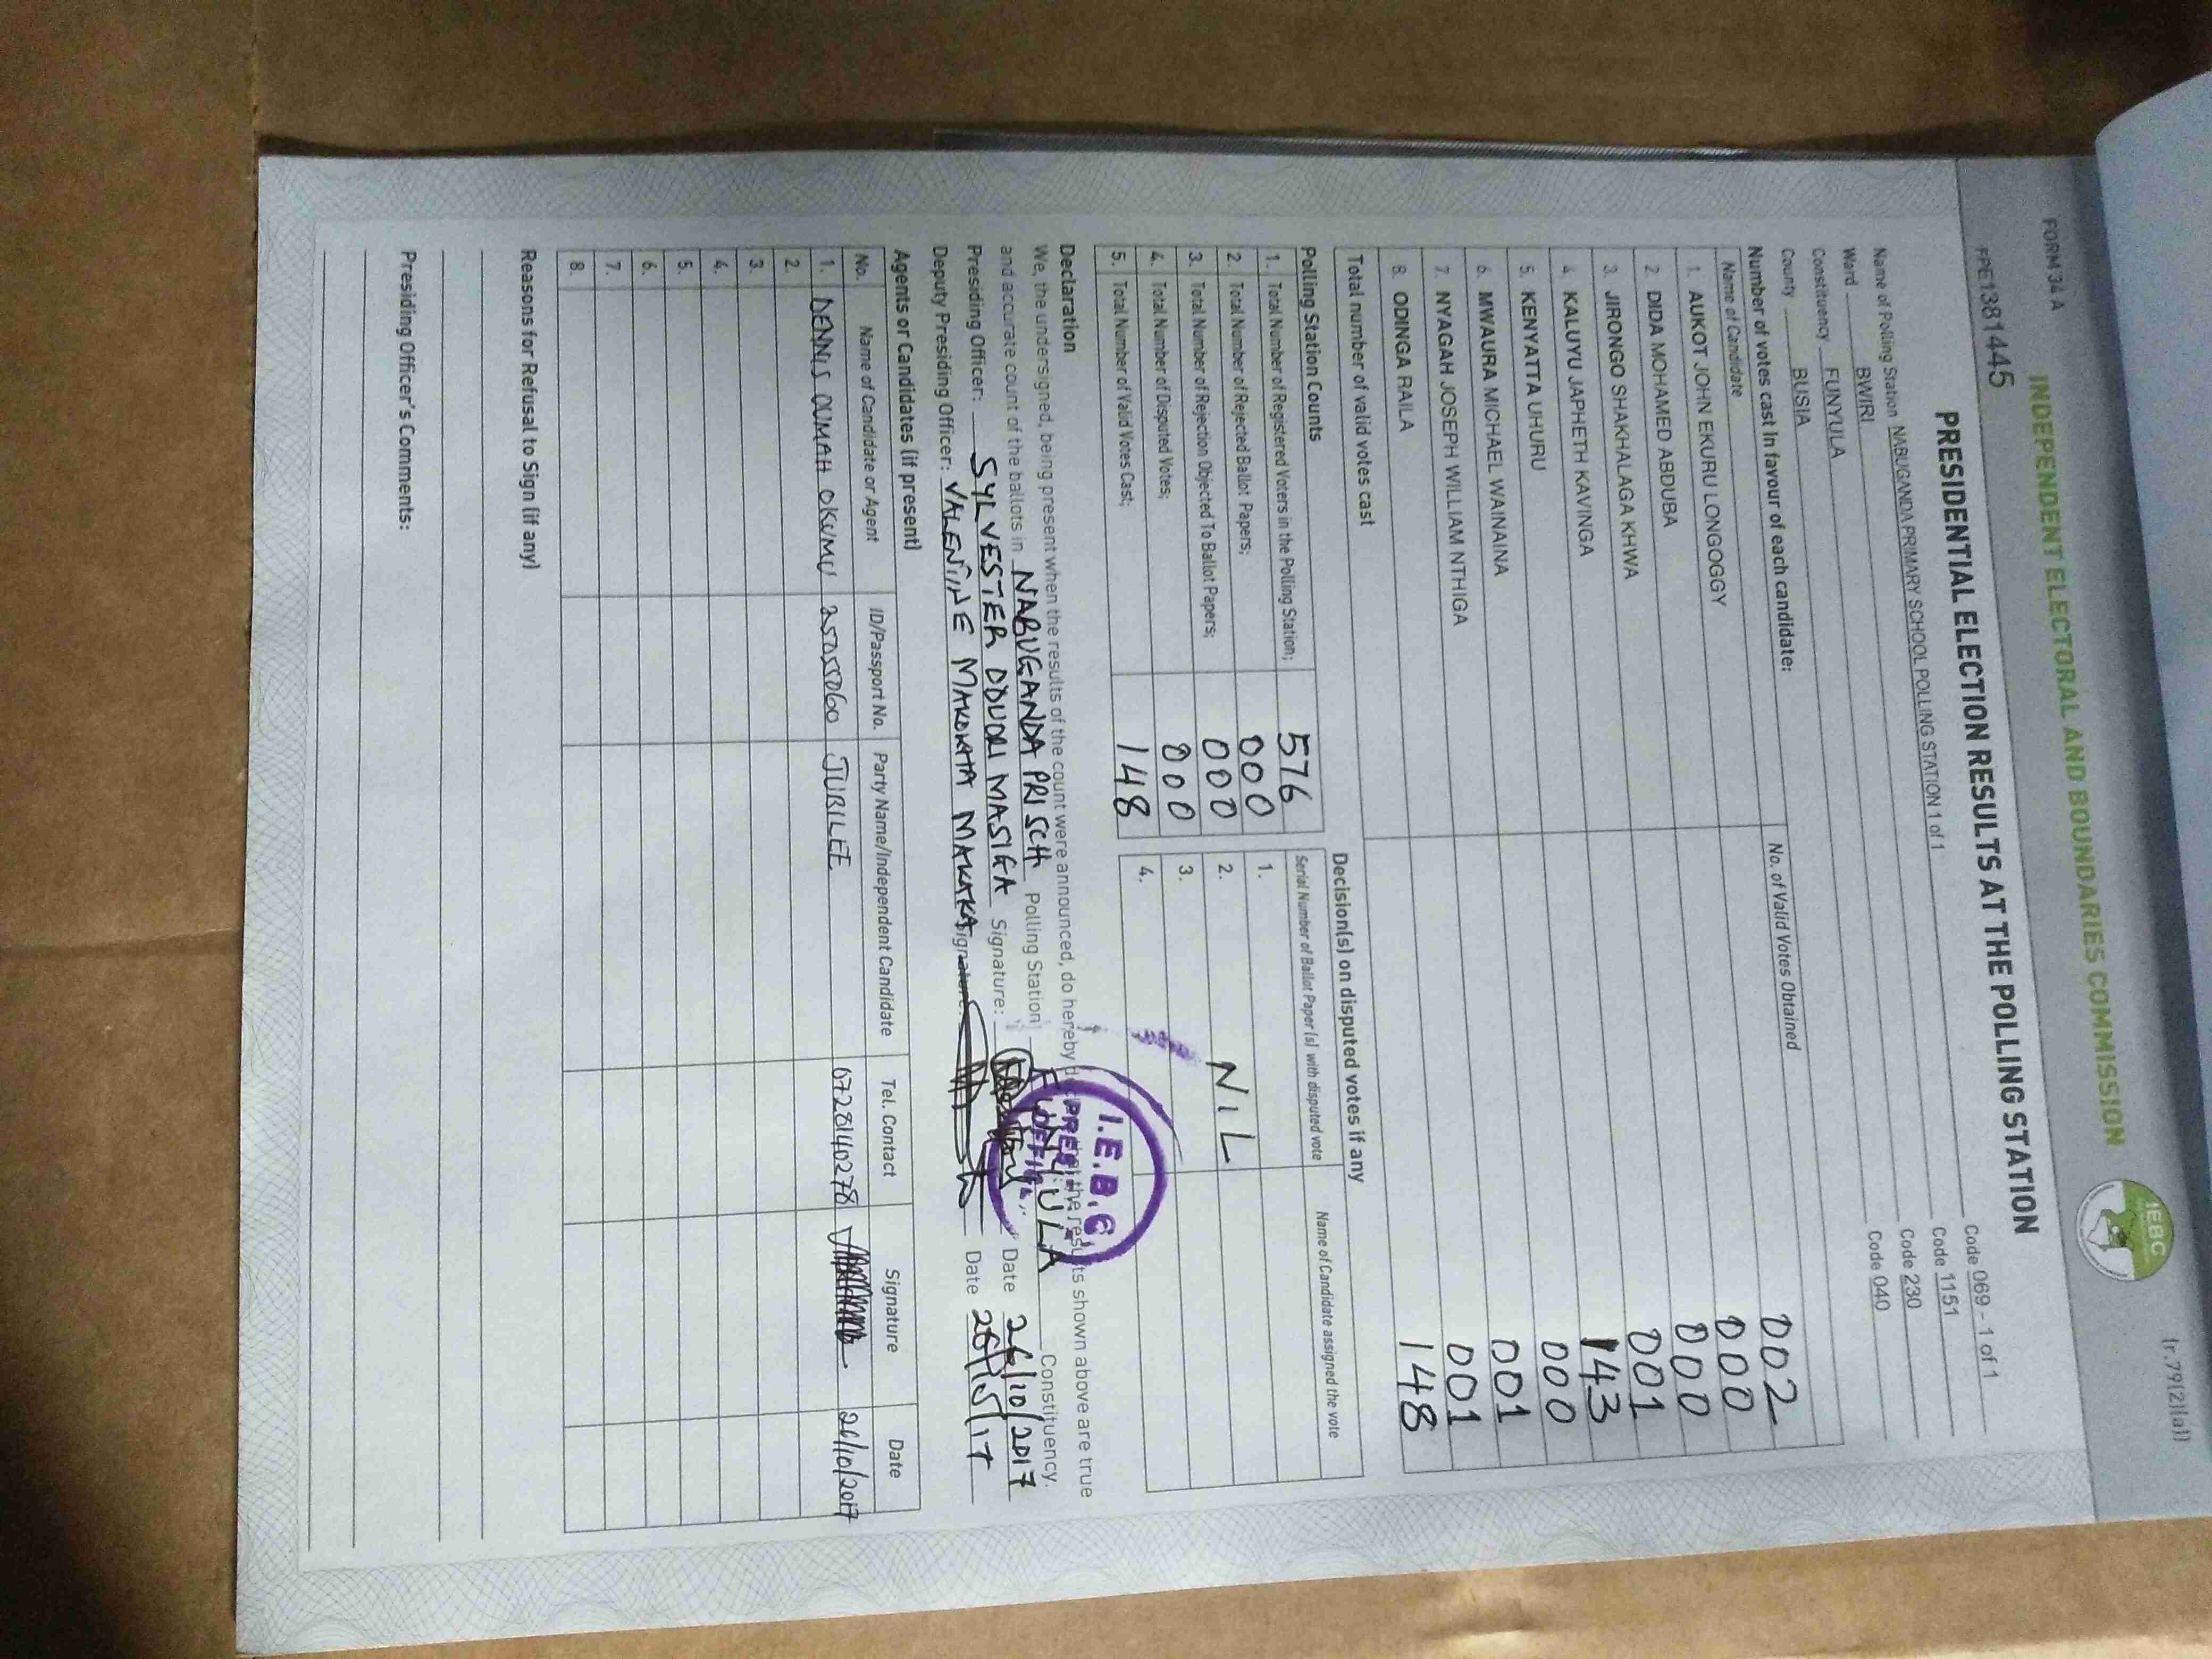 FORM 34 A
(r.79(2)(a))
INDEPENDENT ELECTORAL AND BOUNDARIES COMMISSION
IEBC
FPE1381445
PRESIDENTIAL ELECTION RESULTS AT THE POLLING STATION
Name of Polling Station NABUGANDA PRIMARY SCHOOL POLLING STATION 1 of 1 Code 069 - 1 of 1
Ward BWIRI Code 1151
Constituency FUNYULA Code 230
County BUSIA Code 040
Number of votes cast in favour of each candidate:
Name of Candidate No. of Valid Votes Obtained
1. AUKOT JOHN EKURU LONGOGGY 002
2. DIDA MOHAMED ABDUBA 000
3. JIRONGO SHAKHALAGA KHWA 000
4. KALUYU JAPHETH KAVINGA 001
5. KENYATTA UHURU 143
6. MWAURA MICHAEL WAINAINA 000
7. NYAGAH JOSEPH WILLIAM NTHIGA 001
8. ODINGA RAILA 001
Total number of valid votes cast 148
Polling Station Counts
1. Total Number of Registered Voters in the Polling Station; 576
2. Total Number of Rejected Ballot Papers; 000
3. Total Number of Rejection Objected To Ballot Papers; 000
4. Total Number of Disputed Votes; 000
5. Total Number of Valid Votes Cast; 148
Decision(s) on disputed votes if any
Serial Number of Ballot Paper (s) with disputed vote Name of Candidate assigned the vote
1.
2. NIL
3.
4.
Declaration
We, the undersigned, being present when the results of the count were announced, do hereby the results shown above are true
and accurate count of the ballots in NABUGANDA PRI SCH Polling Station FUNYULA Constituency.
Presiding Officer: SYLVESTER ODUORI MASIGA Signature: Date 26/10/2017
Deputy Presiding Officer: VALENTINE MAKOKHA MAKATKA Signature: Date
I.E.B.C
Agents or Candidates (if present)
No. Name of Candidate or Agent ID/Passport No. Party Name/Independent Candidate Tel. Contact Signature Date
1. DENNIS OUMAH OKUMU 25055060 JUBILEE 0728140278 26/10/2017
2.
3.
4.
5.
6.
7.
8.
Reasons for Refusal to Sign (if any)
Presiding Officer's Comments: